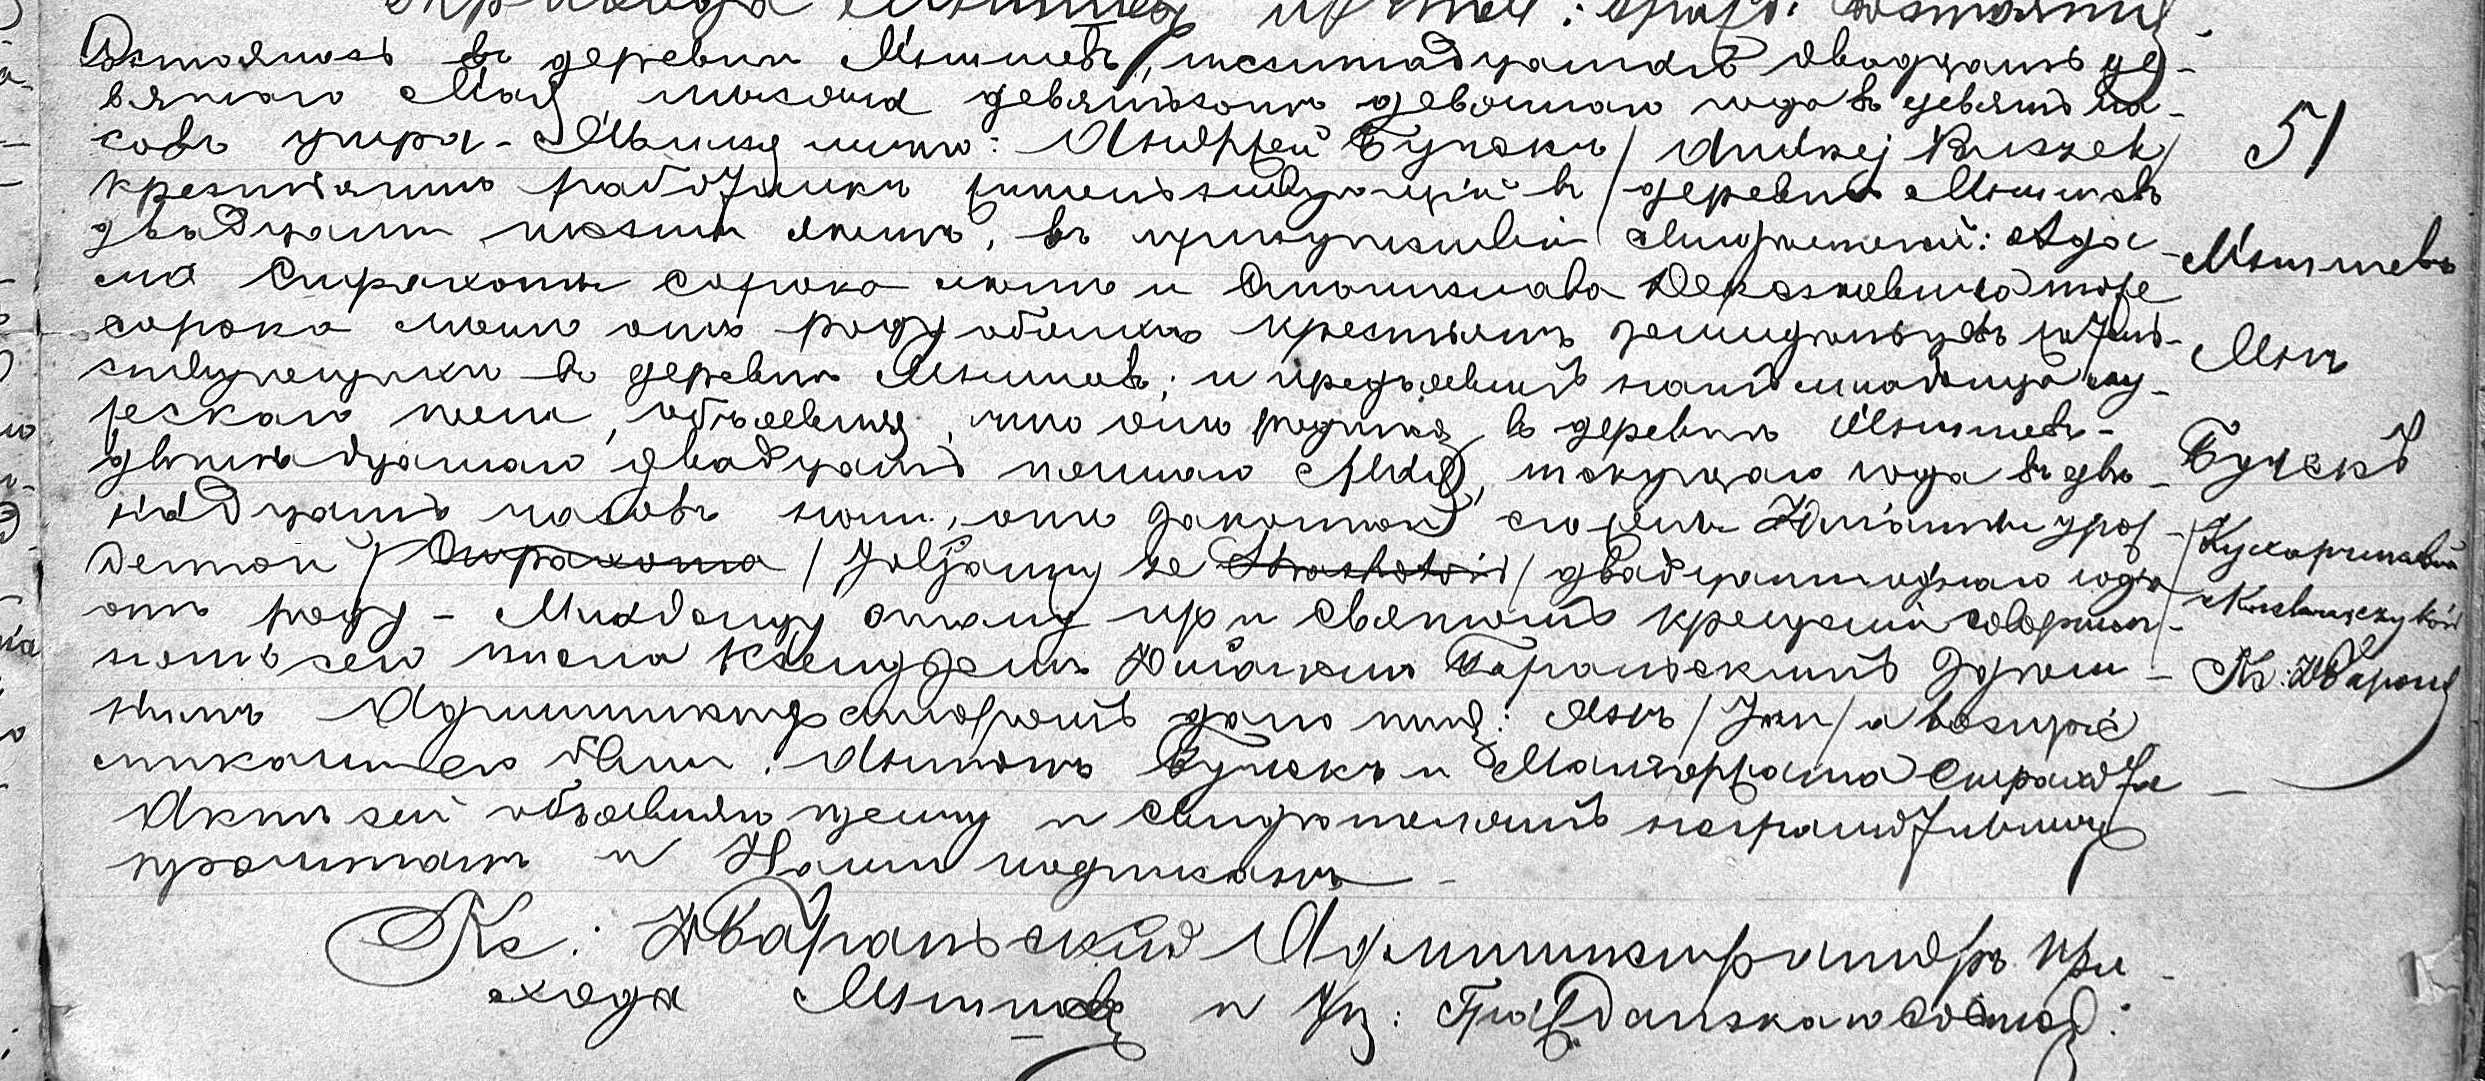 Состоялось въ деревни Мышневъ, шестнадцатаго /двадцать де-
вятаго/ Мая мѣсяца девятьсотъ девятаго года въ девять ча-
совъ утра. Явился лично: Андржей Бучекъ /Andrzej Buczek/
крестьянинъ работникъ жительствующій въ деревни Мышневъ
двадцати шести лѣтъ, въ присутствіи свидѣтелей: Ада-
ма Страхоты сорока лѣтъ и Станислава тоже
сорока лѣтъ отъ роду обоихъ крестьянъ земледѣльцевъ житель-
ствующихъ въ деревни Мышневъ; и предъявилъ намъ младенца му-
жескаго пола, объявляя, что онъ родился въ деревни Мышневъ
двѣнадцатаго /двадцать пятаго/ Мая, текущаго года въ двѣ-
надцать часовъ ночи, отъ законной его жены Юліанны урож-
денной Страхота / Juljanny ze Strachotów / двадцати одного года
отъ роду. Младенцу этому при святомъ крещеніи совершен-
номъ сего числа Ксендземъ Барановскимъ здѣш-
нимъ Администраторомъ дано имя: Янъ /Jan/ а воспріе-
мниками его были: Антонъ Бучекъ и Малгоржата Страхота
Актъ сей объявляющему и свидѣтелямъ неграмотнымъ
прочитанъ и Нами подписанъ
Кс: Администраторъ При-
хода Мышневъ и Гражданскаго сост:
51
Мышневъ
Янъ
Бучекъ
Кс: